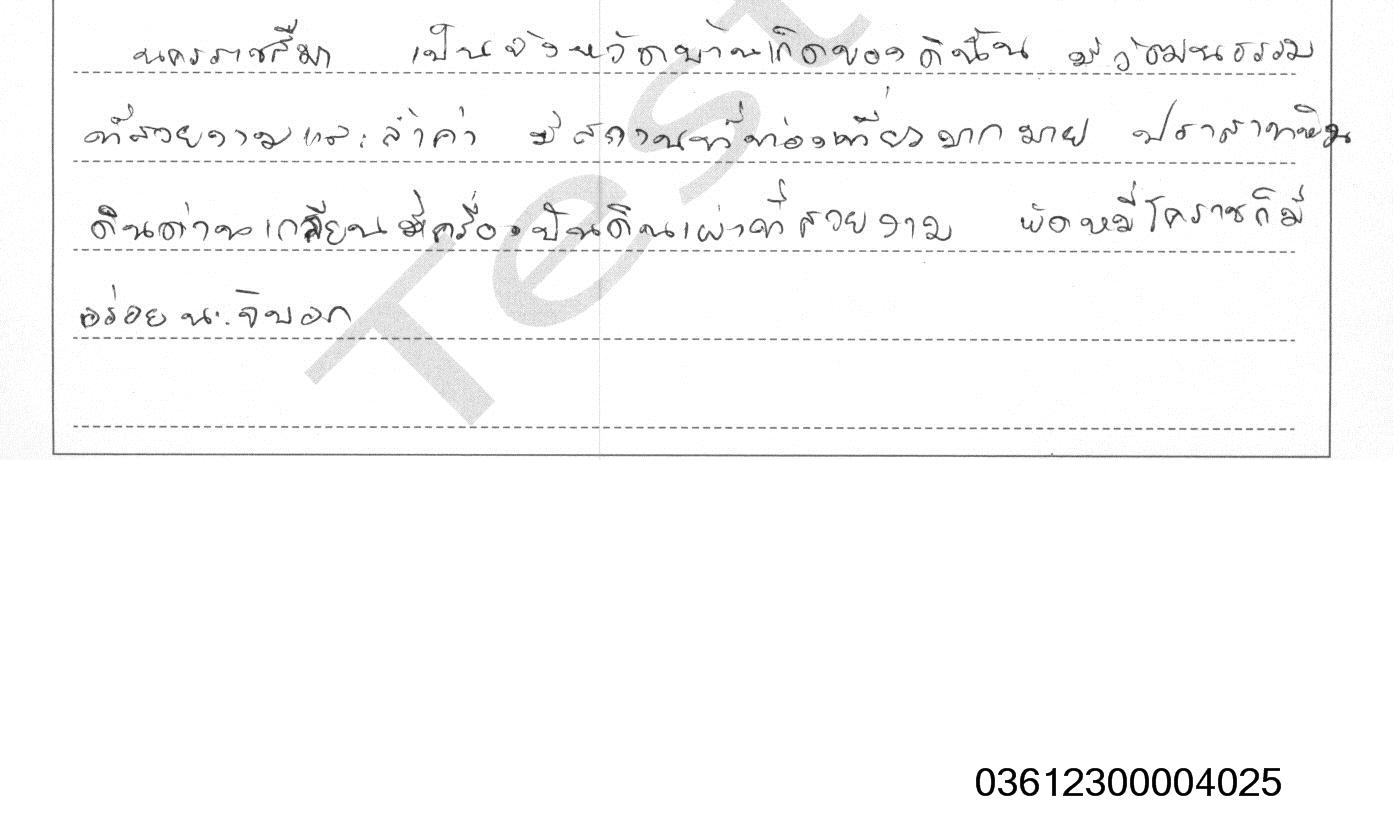 นครราชสีมา เป็นจังหวัดบ้านเกิดของดิฉัน มีวัฒนธรรม
ที่สวยงามและล้ำค่า มีสถานที่ท่องเที่ยวมากมาย ปราสาทหิน
ดินด่านเกวียนมีเครื่องปั้นดินเผาที่สวยงาม ผัดหมี่โคราชก็มี
อร่อยนะจิบอก
Test
03612300004025